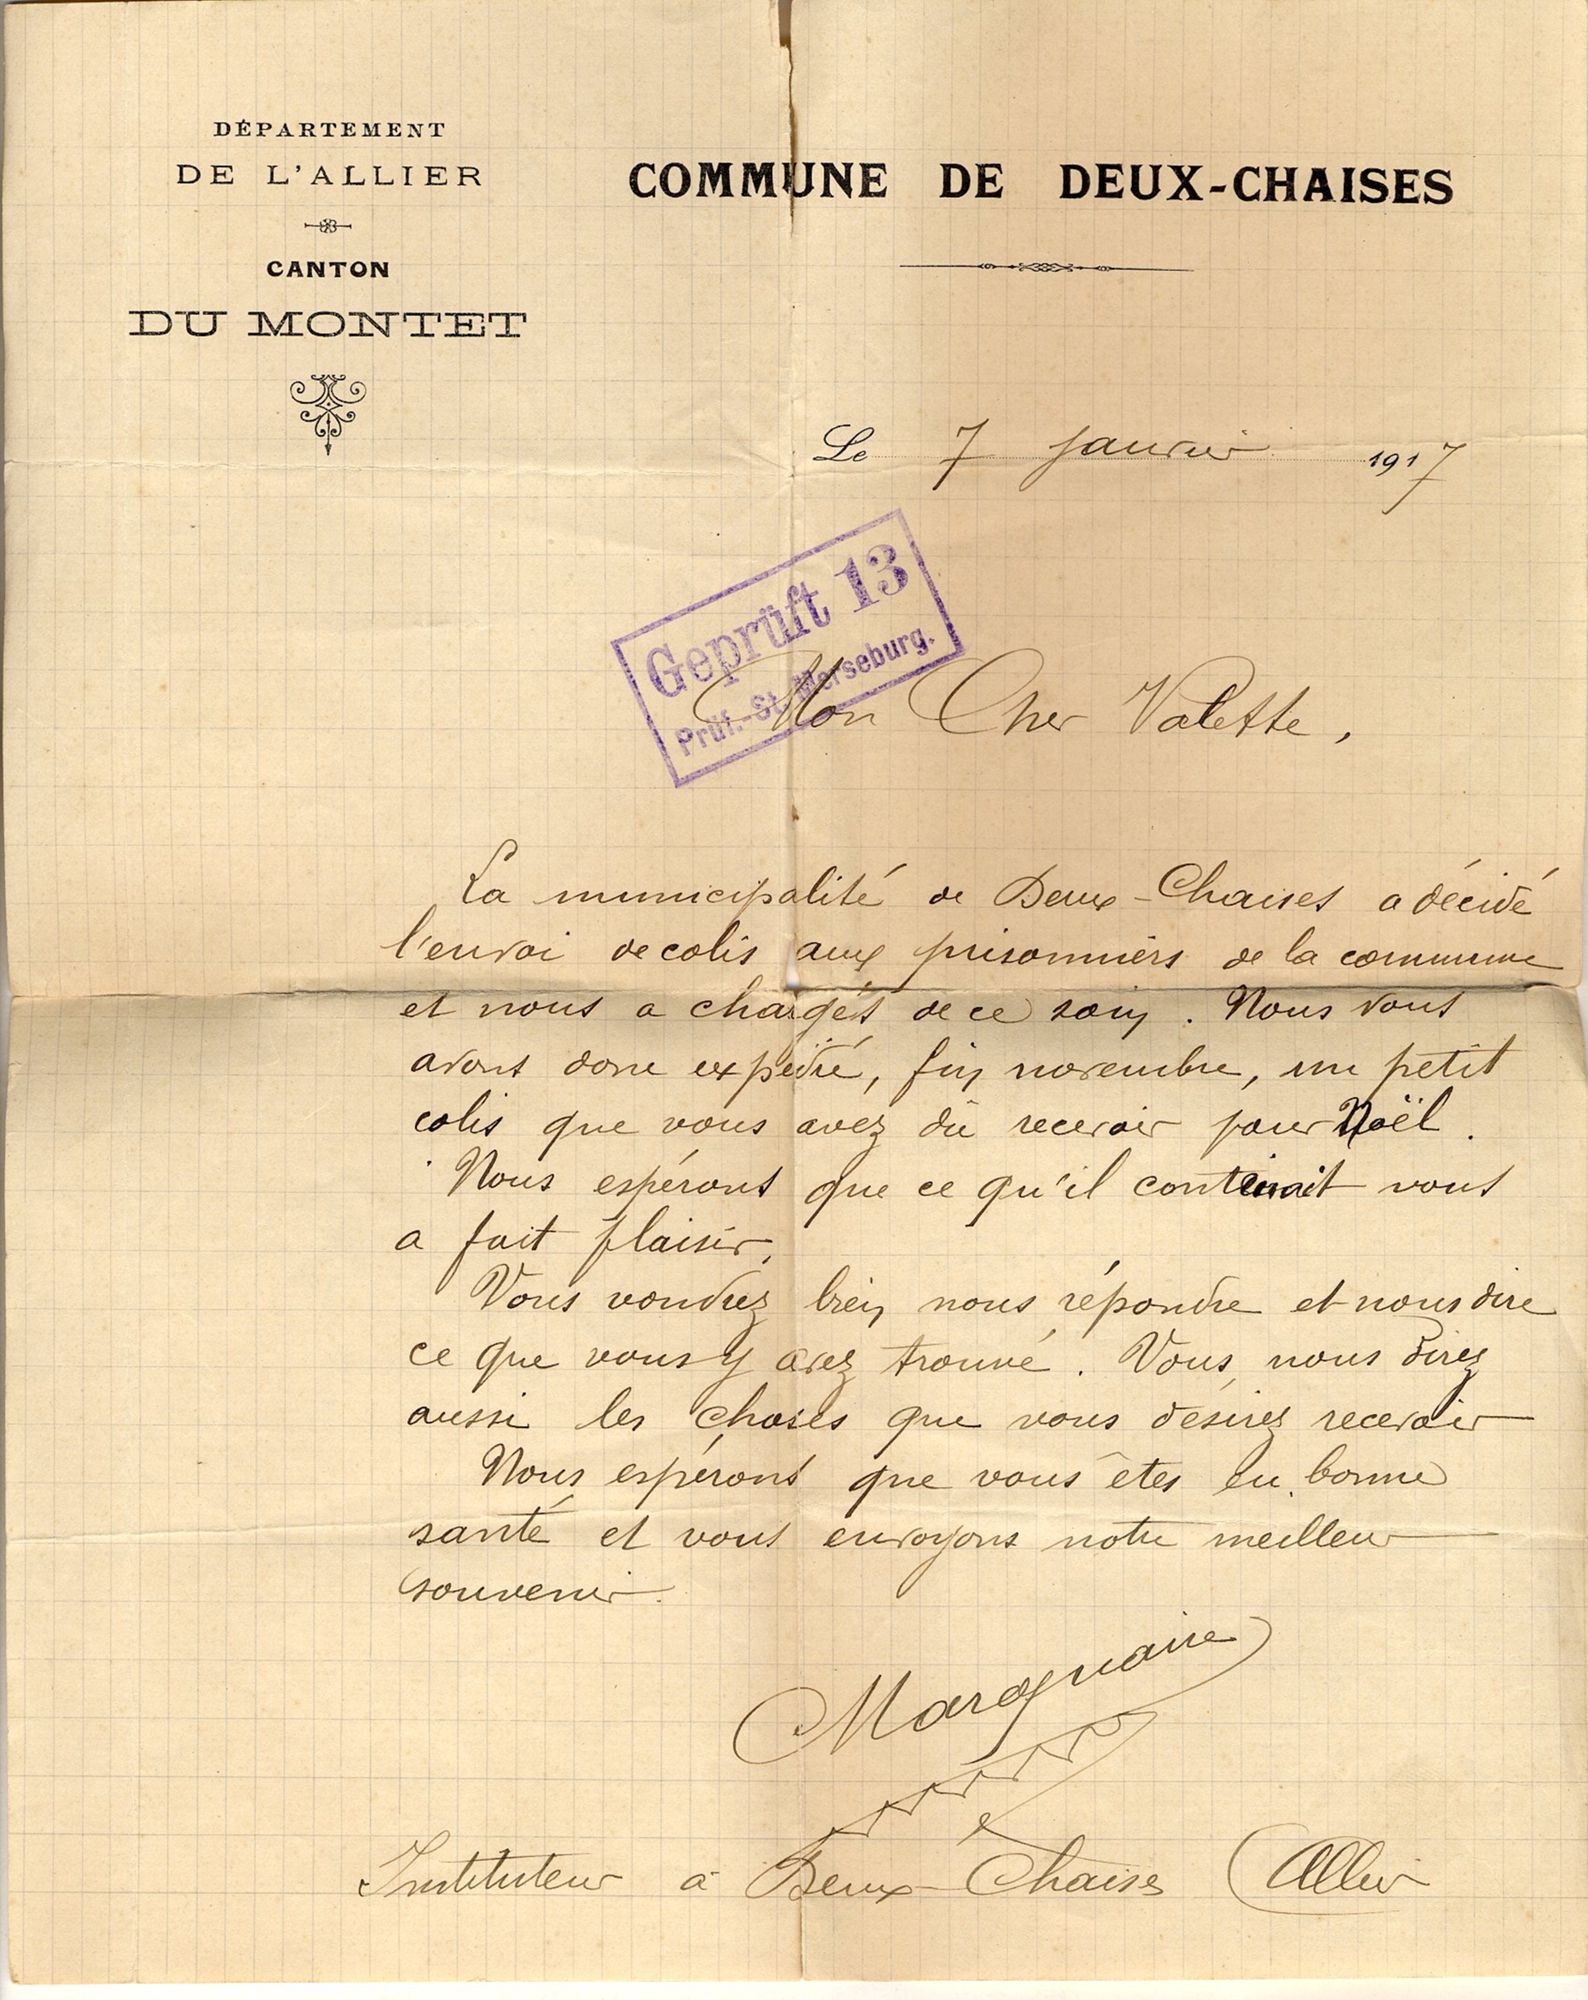 DÉPARTEMENT
DE L'ALLIER
CANTON
DU MONTET
COMMUNE DE DEUX-CHAISES
Le 7 janvier 1917
Geprüft 13
Prüf.-St. Merseburg.
Mon Cher Valette,
La municipalité de Deux-Chaises a décidé
l'envoi de colis aux prisonniers de la commune
et nous a chargés de ce soin. Nous vous
avons donc expédié, fin novembre, un petit
colis que vous avez dû recevoir pour Noël.
Nous espérons que ce qu'il contenait vous
a fait plaisir.
Vous voudrez bien nous répondre et nous dire
ce que vous y avez trouvé. Vous nous direz
aussi les choses que vous désirez recevoir
Nous espérons que vous êtes en bonne
santé et vous envoyons notre meilleur
souvenir.
Marquaire
Instituteur à Deux-Chaises (Allier